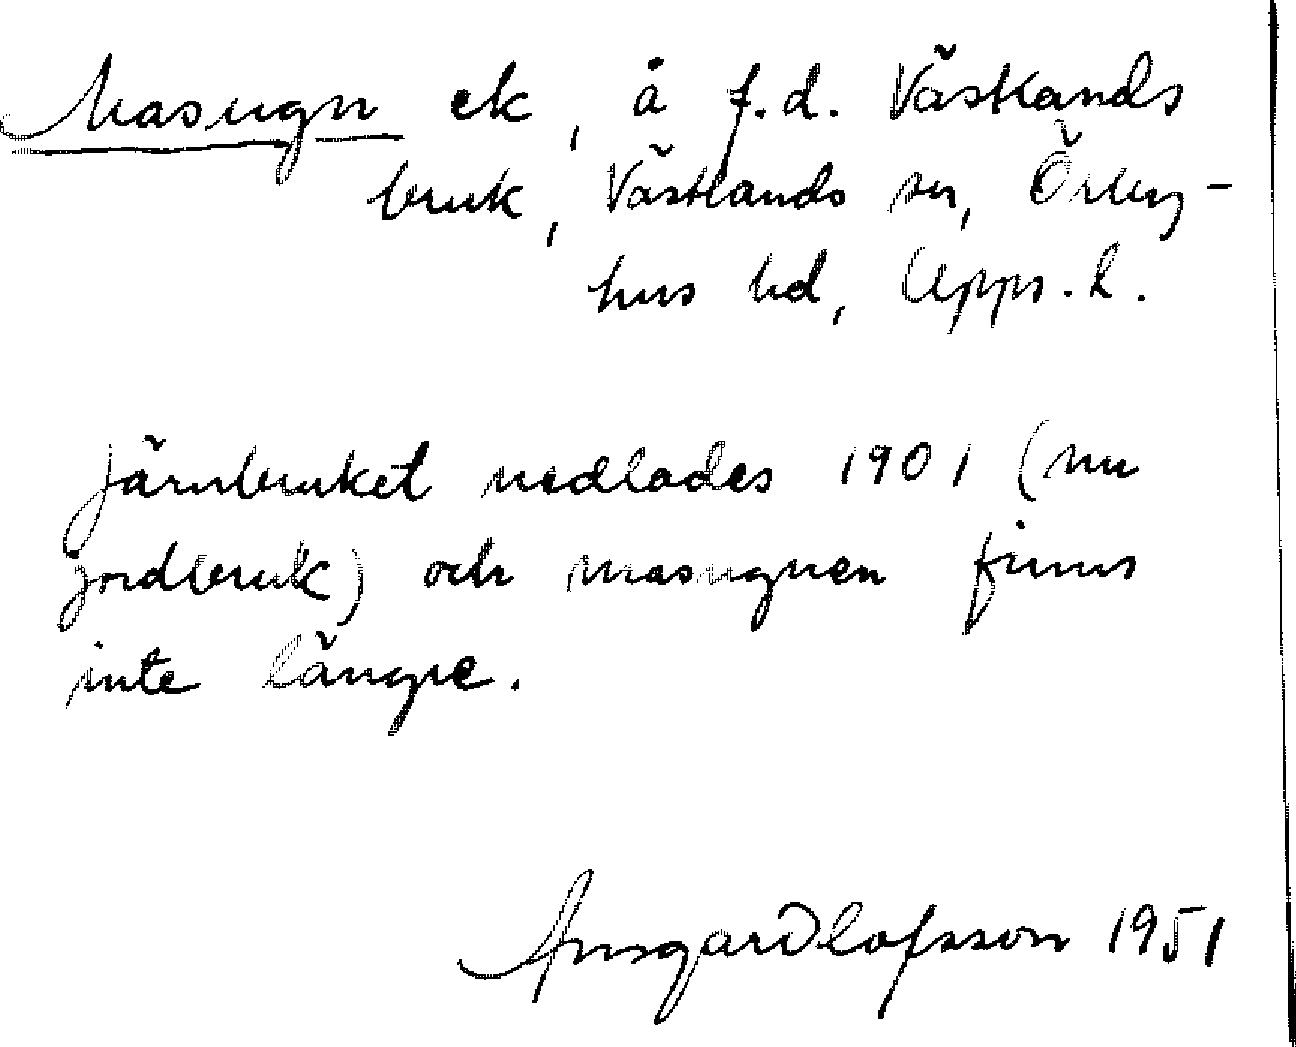 Masugn ek, å f.d. Västlands
bruk, Västlands sn, Örby-
hus hd, Upps. l.
Järnbruket nedlades 1901 (nu
jordbruk) och masugnen finns
inte längre.
Ansgar Olofsson 1951